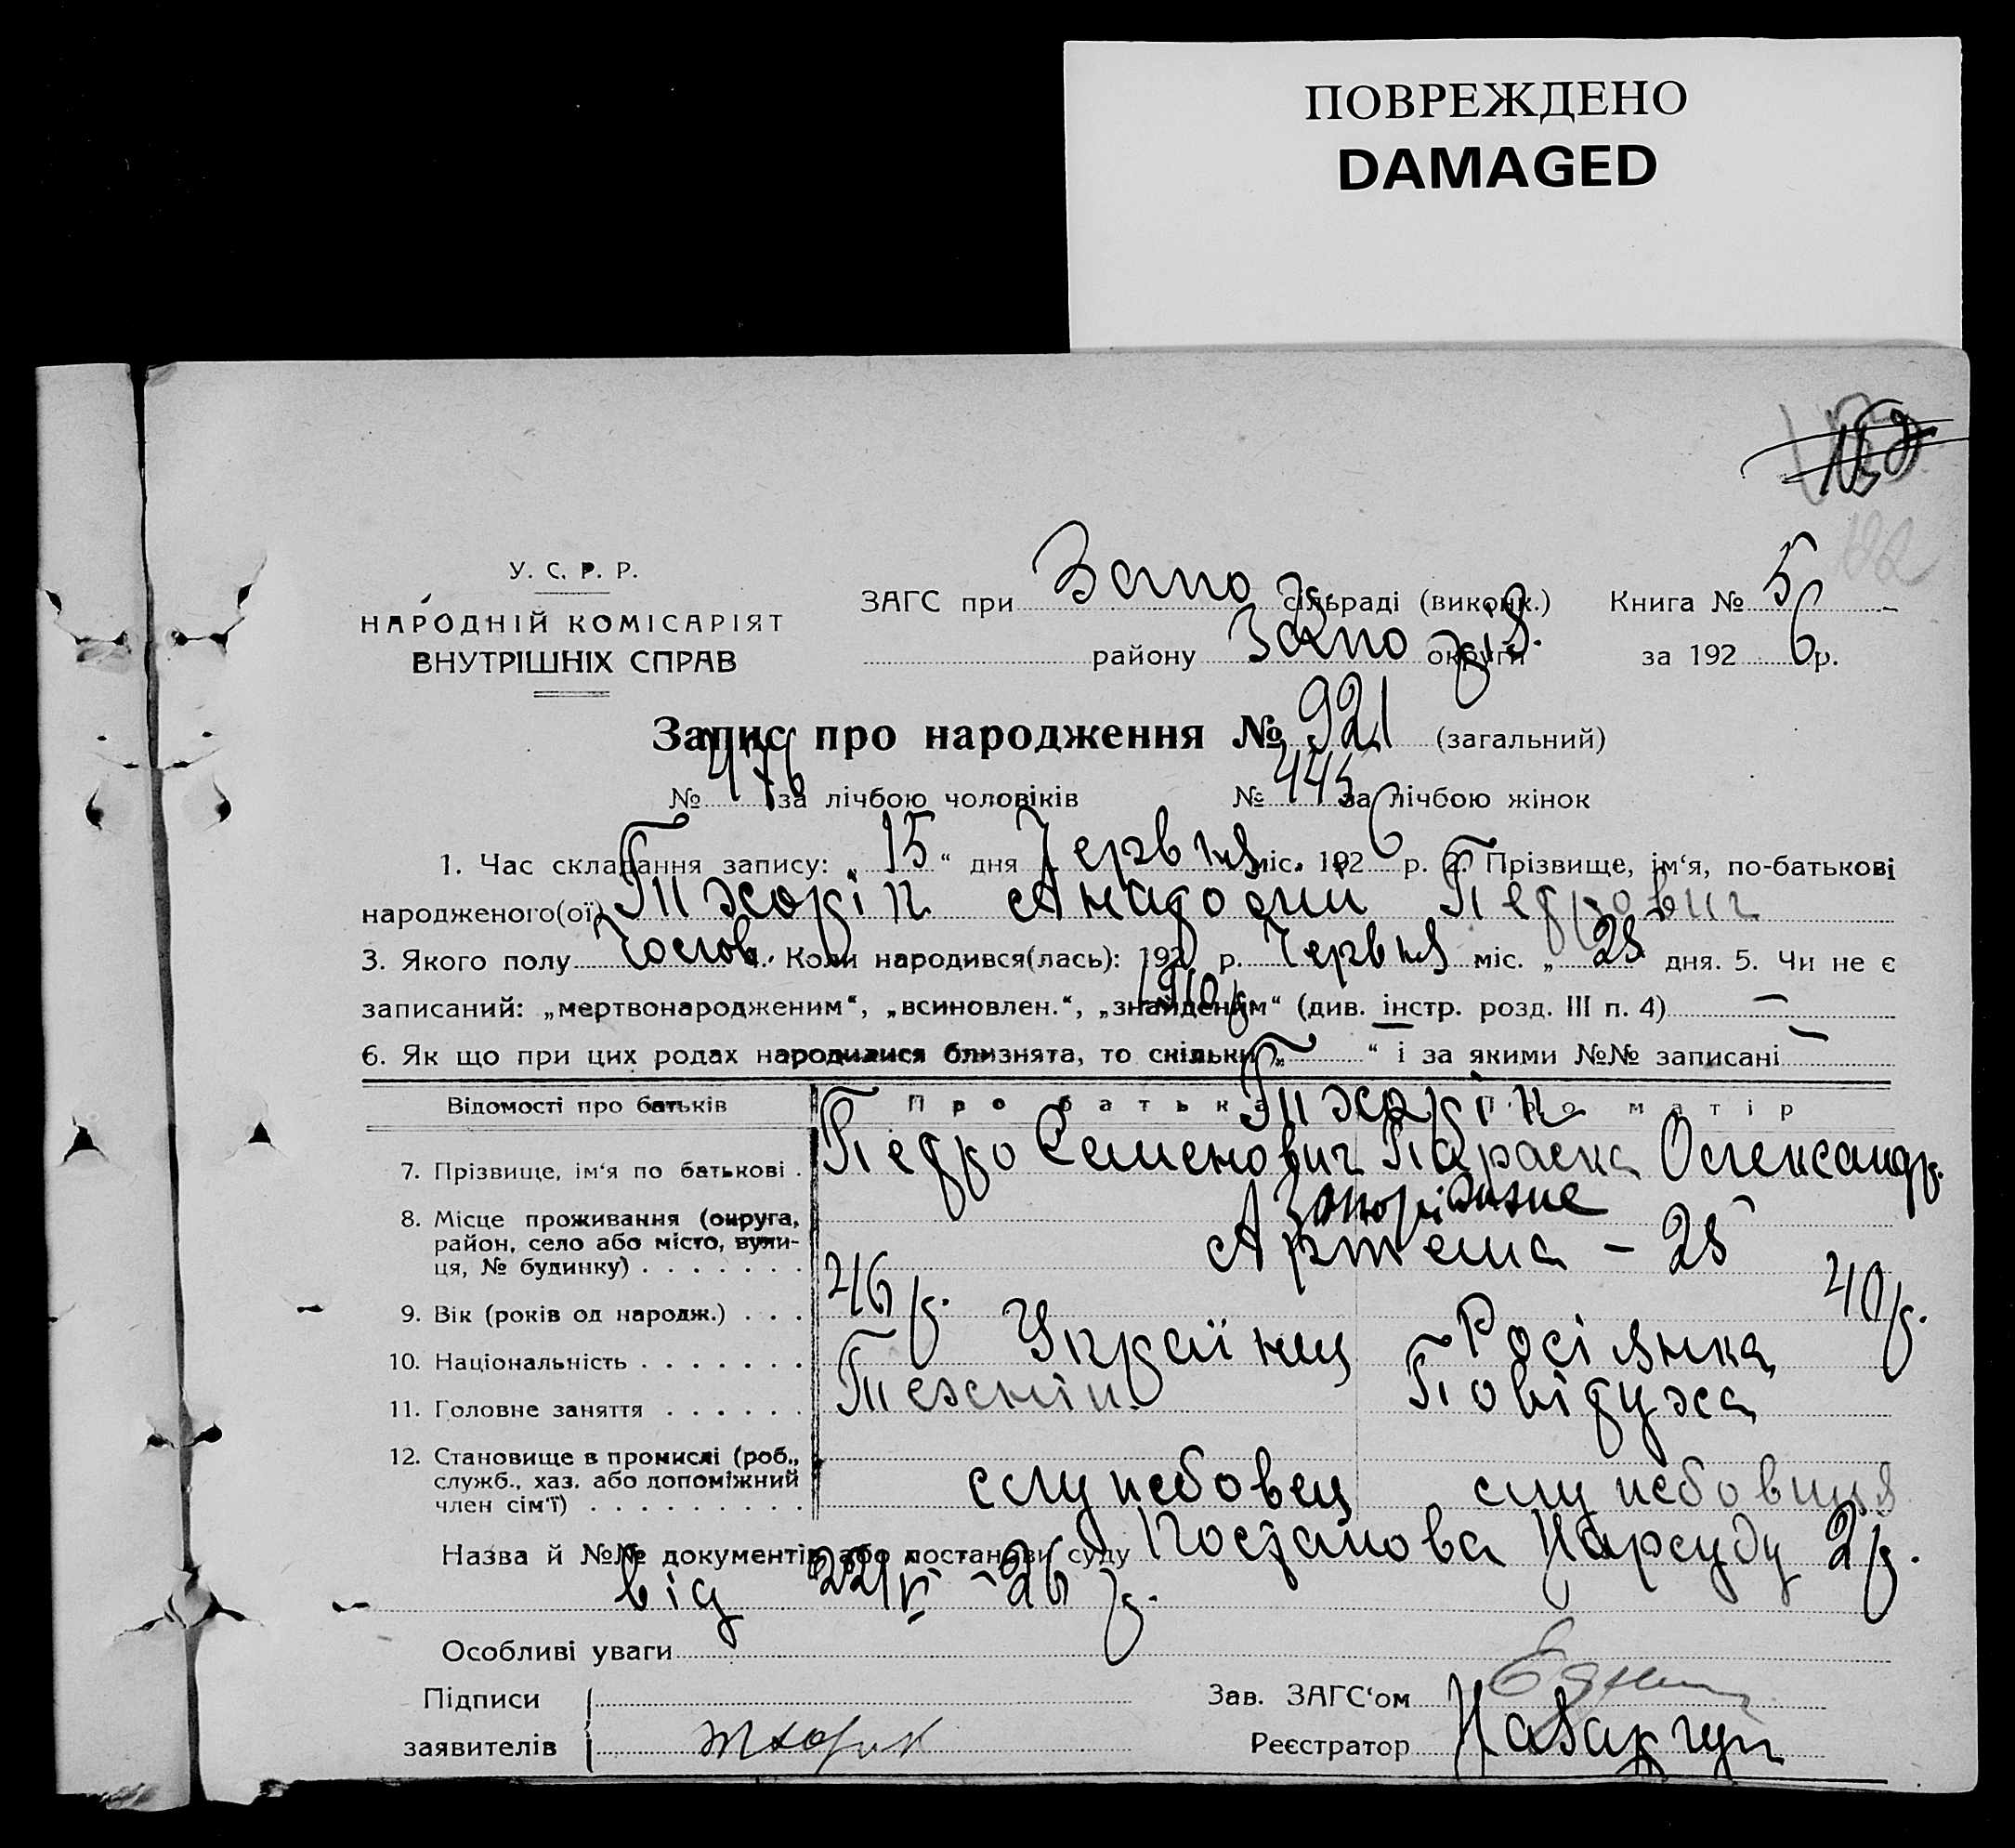 ПОВРЕЖДЕНО
DAMAGED
122
У. С. Р. Р.
НАРОДНІЙ КОМІСАРІЯТ
ВНУТРІШНІХ СПРАВ
ЗАГС при Запо сільраді (виконк.) Книга № 5
району Запо округи за 1926 р.
Запис про народження № 921 (загальний)
№ 476 за лічбою чоловіків № 445 за лічбою жінок
1. Час складання запису: „15“ дня Червня міс. 1926 р. 2. Прізвище, ім‘я, по-батькові
народженого(ої) Тхорік Анатолій Петрович
3. Якого полу Чолов. 4. Коли народився(лась): 192 р. Червня міс. „28“ дня. 5. Чи не є
1910 р.
записаний: „мертвонародженим“, „всиновлен.“, „знайденим“ (див. інстр. розд. III п. 4) —
6. Як що при цих родах народилися близнята, то скільки „—“ і за якими №№ записані —
Відомості про батьків Про батька Про матір
Тхорік
7. Прізвище, ім‘я по батькові . Петро Семенович Параска Олександр.
8. Місце проживання (округа, район, село або місто, вули-ця, № будинку) . . . . . . . Запоріжжє
Артема – 28
9. Вік (років од народж.) . . . 46 р. 40 р.
10. Національність . . . . . . . Українец Росіянка
11. Головне заняття . . . . . . Технік Повітуха
12. Становище в промислі (роб., служб., хаз. або допоміжний член сім‘ї) . . . . . . . . . службовец службовиця
Назва й №№ документів або постанови суду Постанова Нарсуду 2 р.
від 22/IV – 26 р.
Особливі уваги
Підписи
заявителів Тхорік
Зав. ЗАГС‘ом
Реєстратор